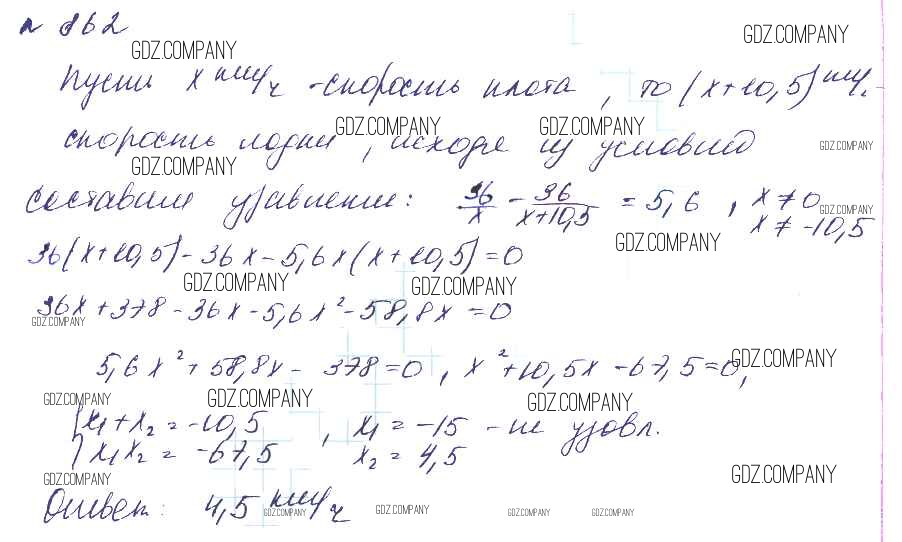 № 862
GDZ.COMPANY GDZ.COMPANY
Пусть x км/ч - скорость плота, то (x+10,5) км/ч -
GDZ.COMPANY GDZ.COMPANY
скорость лодки, исходя из условий
GDZ.COMPANY GDZ.COMPANY
составим уравнение: 36/x - 36/(x+10,5) = 5,6, x ≠ 0
GDZ.COMPANY
x ≠ -10,5
GDZ.COMPANY
36(x+10,5) - 36x - 5,6x(x+10,5) = 0
GDZ.COMPANY GDZ.COMPANY
36x + 378 - 36x - 5,6x² - 58,8x = 0
GDZ.COMPANY
5,6x² + 58,8x - 378 = 0, x² + 10,5x - 67,5 = 0,
GDZ.COMPANY
GDZ.COMPANY GDZ.COMPANY GDZ.COMPANY
{ x₁ + x₂ = -10,5, x₁ = -15 - не удовл.
x₁x₂ = -67,5 x₂ = 4,5
GDZ.COMPANY GDZ.COMPANY
Ответ: 4,5 км/ч
GDZ.COMPANY GDZ.COMPANY GDZ.COMPANY GDZ.COMPANY